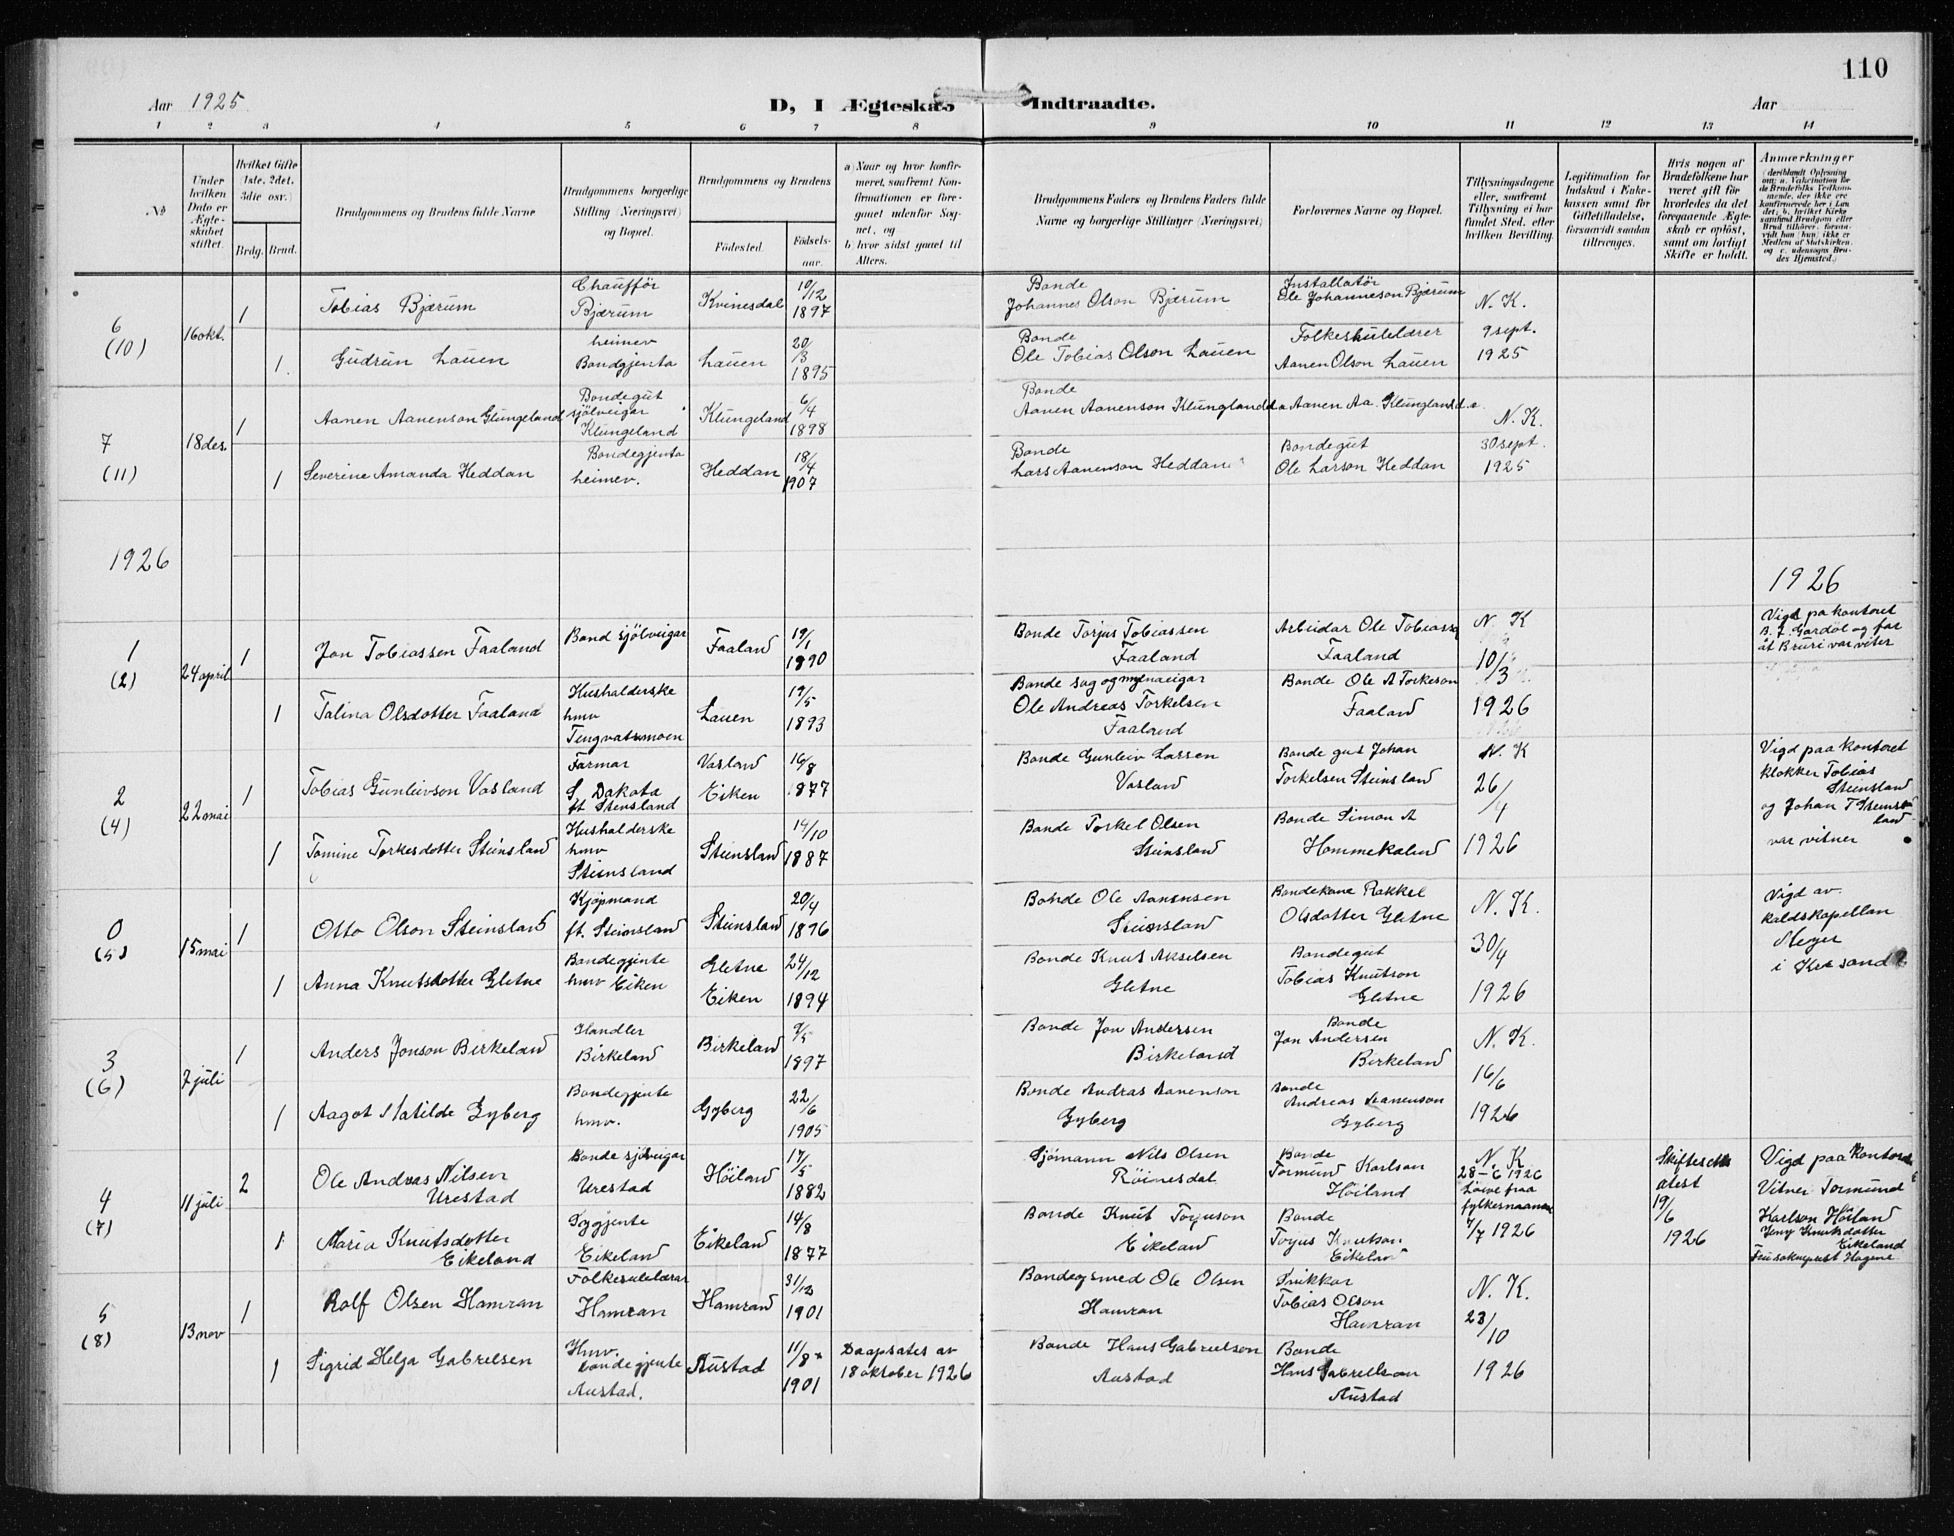 110
Aar 1925
D, I Ægteskab
Indtraadte.
Aar
1 2 3 4 5 6 7 8 9 10 11 12 13 14
No
Under hvilken Dato er Ægteskabet stiftet.
Hvilket Gifte (1ste, 2det, 3die osv.)
Brdg. Brud.
Brudgommens og Brudens fulde Navne
Brudgommens borgerlige Stilling (Næringsvei) og Bopæl.
Brudgommens og Brudens
Fødested.
Fødselsaar.
a) Naar og hvor konfirmeret, saafremt Konfirmationen er foregaaet udenfor Sognet, og
b) hvor sidst gaaet til Alters.
Brudgommens Faders og Brudens Faders fulde Navne og borgerlige Stillinger (Næringsvei)
Forlovernes Navne og Bopæl.
Tillysningsdagene eller, saafremt Tillysning ei har fundet Sted, efter hvilken Bevilling.
Legitimation for Indskud i Enkekassen samt for Giftetilladelse, forsaavidt saadan tiltrænges.
Hvis nogen af Brudefolkene har været gift før hvorledes da det foregaaende Ægteskab er opløst, samt om lovligt Skifte er holdt.
Anmærkninger
(deriblandt Oplysning om: a. Vakcination for de Brudefolks Vedkommende, der ikke ere konfirmerede her i Landet; b. hvilket Kirkesamfund Brudgom eller Brud tilhører, forsaavidt han (hun) ikke er Medlem af Statskirken, og c. udensogns Brudes Hjemsted.)
6
(10)
16 okt.
1
Tobias Bjærum
Chauffør
Bjærum
Kvinesdal
10/12
1897
Bonde
Johannes Olson Bjærum
Installatør
Ole Johanneson Bjærum
N. K.
1.
Gudrun Lauen
heimev
Bondgjenta
Lauen
20/3
1895
Bonde
Ole Tobias Olson Lauen
Folkeskulelærer
Aanen Olson Lauen
9 sept.
1925
7
(11)
18 des.
1
Aanen Aanenson Glungeland
Bondegut
sjölveigar
Klungeland
Klungeland
6/4
1898
Bonde
Aanen Aanenson Klungland d.a.
Aanen Aa. Klungland d.a.
N. K.
1
Severine Amanda Heddan
Bondegjenta
heimev.
Heddan
18/4
1907
Bonde
Lars Aanenson Heddan
Bondegut
Ole Larson Heddan
30 sept.
1925
1926
1926
1
(2)
24 april
1
Jon Tobiassen Faaland
Bond sjölveigar
Faaland
19/1
1890
Bonde Torjus Tobiassen
Faaland
Arbeidar Ole Tobiassen
Faaland
N. K
10/3
1926
Vigd pa kontoret
B. F. Gardöl og far
åt Bruri var viter
1
Talina Olsdotter Faaland
Husholderske
hmv
Tengvatsmoen
Lauen
19/5
1893
Bonde sag og mylnaeigar
Ole Andreas Torkelsen
Faaland
Bonde Ole A Torkeson
Faaland
2
(4)
22 mai
1
Tobias Gunleivson Vasland
Farmar
S. Dakota
ft Stensland
Vasland
Eiken
16/8
1877
Bonde Gunleiv Larsen
Vasland
Bonde gut Johan
Torkelsen Steinsland
N. K
26/4
1926
Vigd paa kontoret
klokker Tobias
Steinsland
og Johan T Steinsland
var vitner
1
Tomine Torkesdotter Steinsland
Husholderske
hmv
Steinsland
Steinsland
14/10
1887
Bonde Torkel Olsen
Steinsland
Bonde Simon A
Hommekaland
0
(5)
15 mai
1
Otto Olson Steinsland
Kjøpmand
ft. Steinsland
Steinsland
20/4
1896
Bonde Ole Aanensen
Steinsland
Bondekone Rakkel
Olsdotter Gletne
N. K.
30/4
1926
Vigd av
kaldskapellan
Meyer
i Krsand
1
Anna Knutsdotter Gletne
Bondegjente
hmv Eiken
Gletne
Eiken
24/12
1894
Bonde Knut Akselsen
Gletne
Bondegut
Tobias Knutson
Gletne
3
(6)
7 juli
1
Anders Jonson Birkeland
Handler
Birkeland
Birkeland
9/5
1897
Bonde Jon Andersen
Birkeland
Bonde
Jon Andersen
Birkeland
N. K.
16/6
1926
1
Aagot Matilde Gyberg
Bondegjente
hmv.
Gyberg
22/6
1905
Bonde Andras Aanenson
Gyberg
Bonde
Andreas Aanenson
Gyberg
4
(7)
11 juli
2
Ole Andreas Nilsen
Urestad
Bonde sjölveigar
Urestad
Höiland
17/5
1882
Sjømann Nils Olsen
Röinesdal
Bonde
Tormund Karlson
Höiland
N. K
28-6 1926
Løive fraa
fylkesmannen
7/7 1926
Skiftesatest
19/6
1926
Vigd paa Kontoret
Vitner Tormund
Karlson Höiland
Jeny Knutsdotter
Eikeland
1
Maria Knutsdotter
Eikeland
Eikeland
Eikeland
14/8
1877
Bonde Knut Torjuson
Eikeland
Bonde
Torjus Knutson
Eikeland
5
(8)
13 nov
1
Rolf Olsen Hamran
Folkeskulelærar
Hamran
Hamran
31/12
1901
Bondegsmed Ole Olsen
Hamran
Snikkar
Tobias Olson
Hamran
N. K.
23/10
1926
1
Sigrid Helga Gabrielsen
Hmv.
bondegjente
Austad.
Austad
11/8
1901
Daapsatest av
18 oktober 1926
Bonde Hans Gabrielson
Austad
Bonde
Hans Gabrielson
Austad